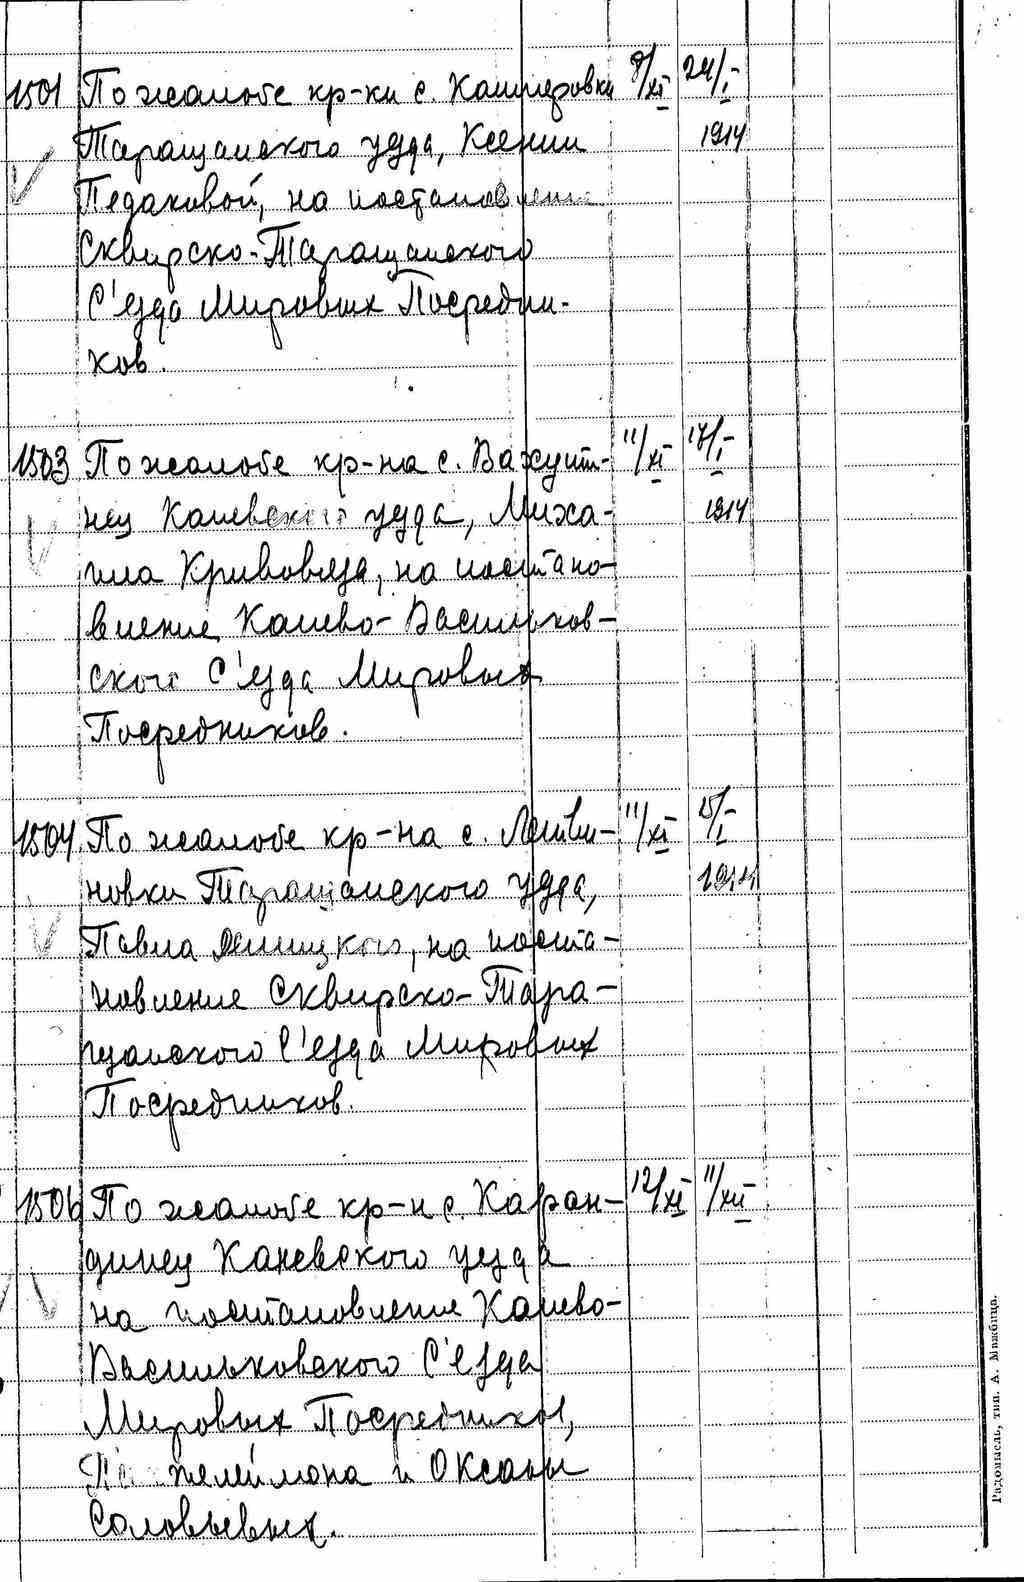 1501 По жалобе кр-ки с. Кашперовки 8/XI 24/I
Таращанского уезда, Ксении 1914
Педаховой, на постановление
Сквирско-Таращанского
С'езда Мировых Посредни-
ков.
1503 По жалобе кр-на с. Вахути- 11/XI 17/I
нец Каневского уезда, Миха- 1914
ила Кривовяза, на постано-
вление Канево-Васильков-
ского С'езда Мировых
Посредников.
1504 По жалобе кр-на с. Литви- 11/XI 15/I
новки Таращанского уезда, 1914
Павла на поста-
новление Сквирско-Тара-
щанского С'езда Мировых
Посредников.
1506 По жалобе кр-н с. Каран- 12/XI 11/XII
динец Каневского уезда
на постановление Канево-
Васильковского С'езда
Мировых Посредников,
Пантелеймона и Оксаны
Соловьевых.
Радомысль, тип. А. Мажбица.